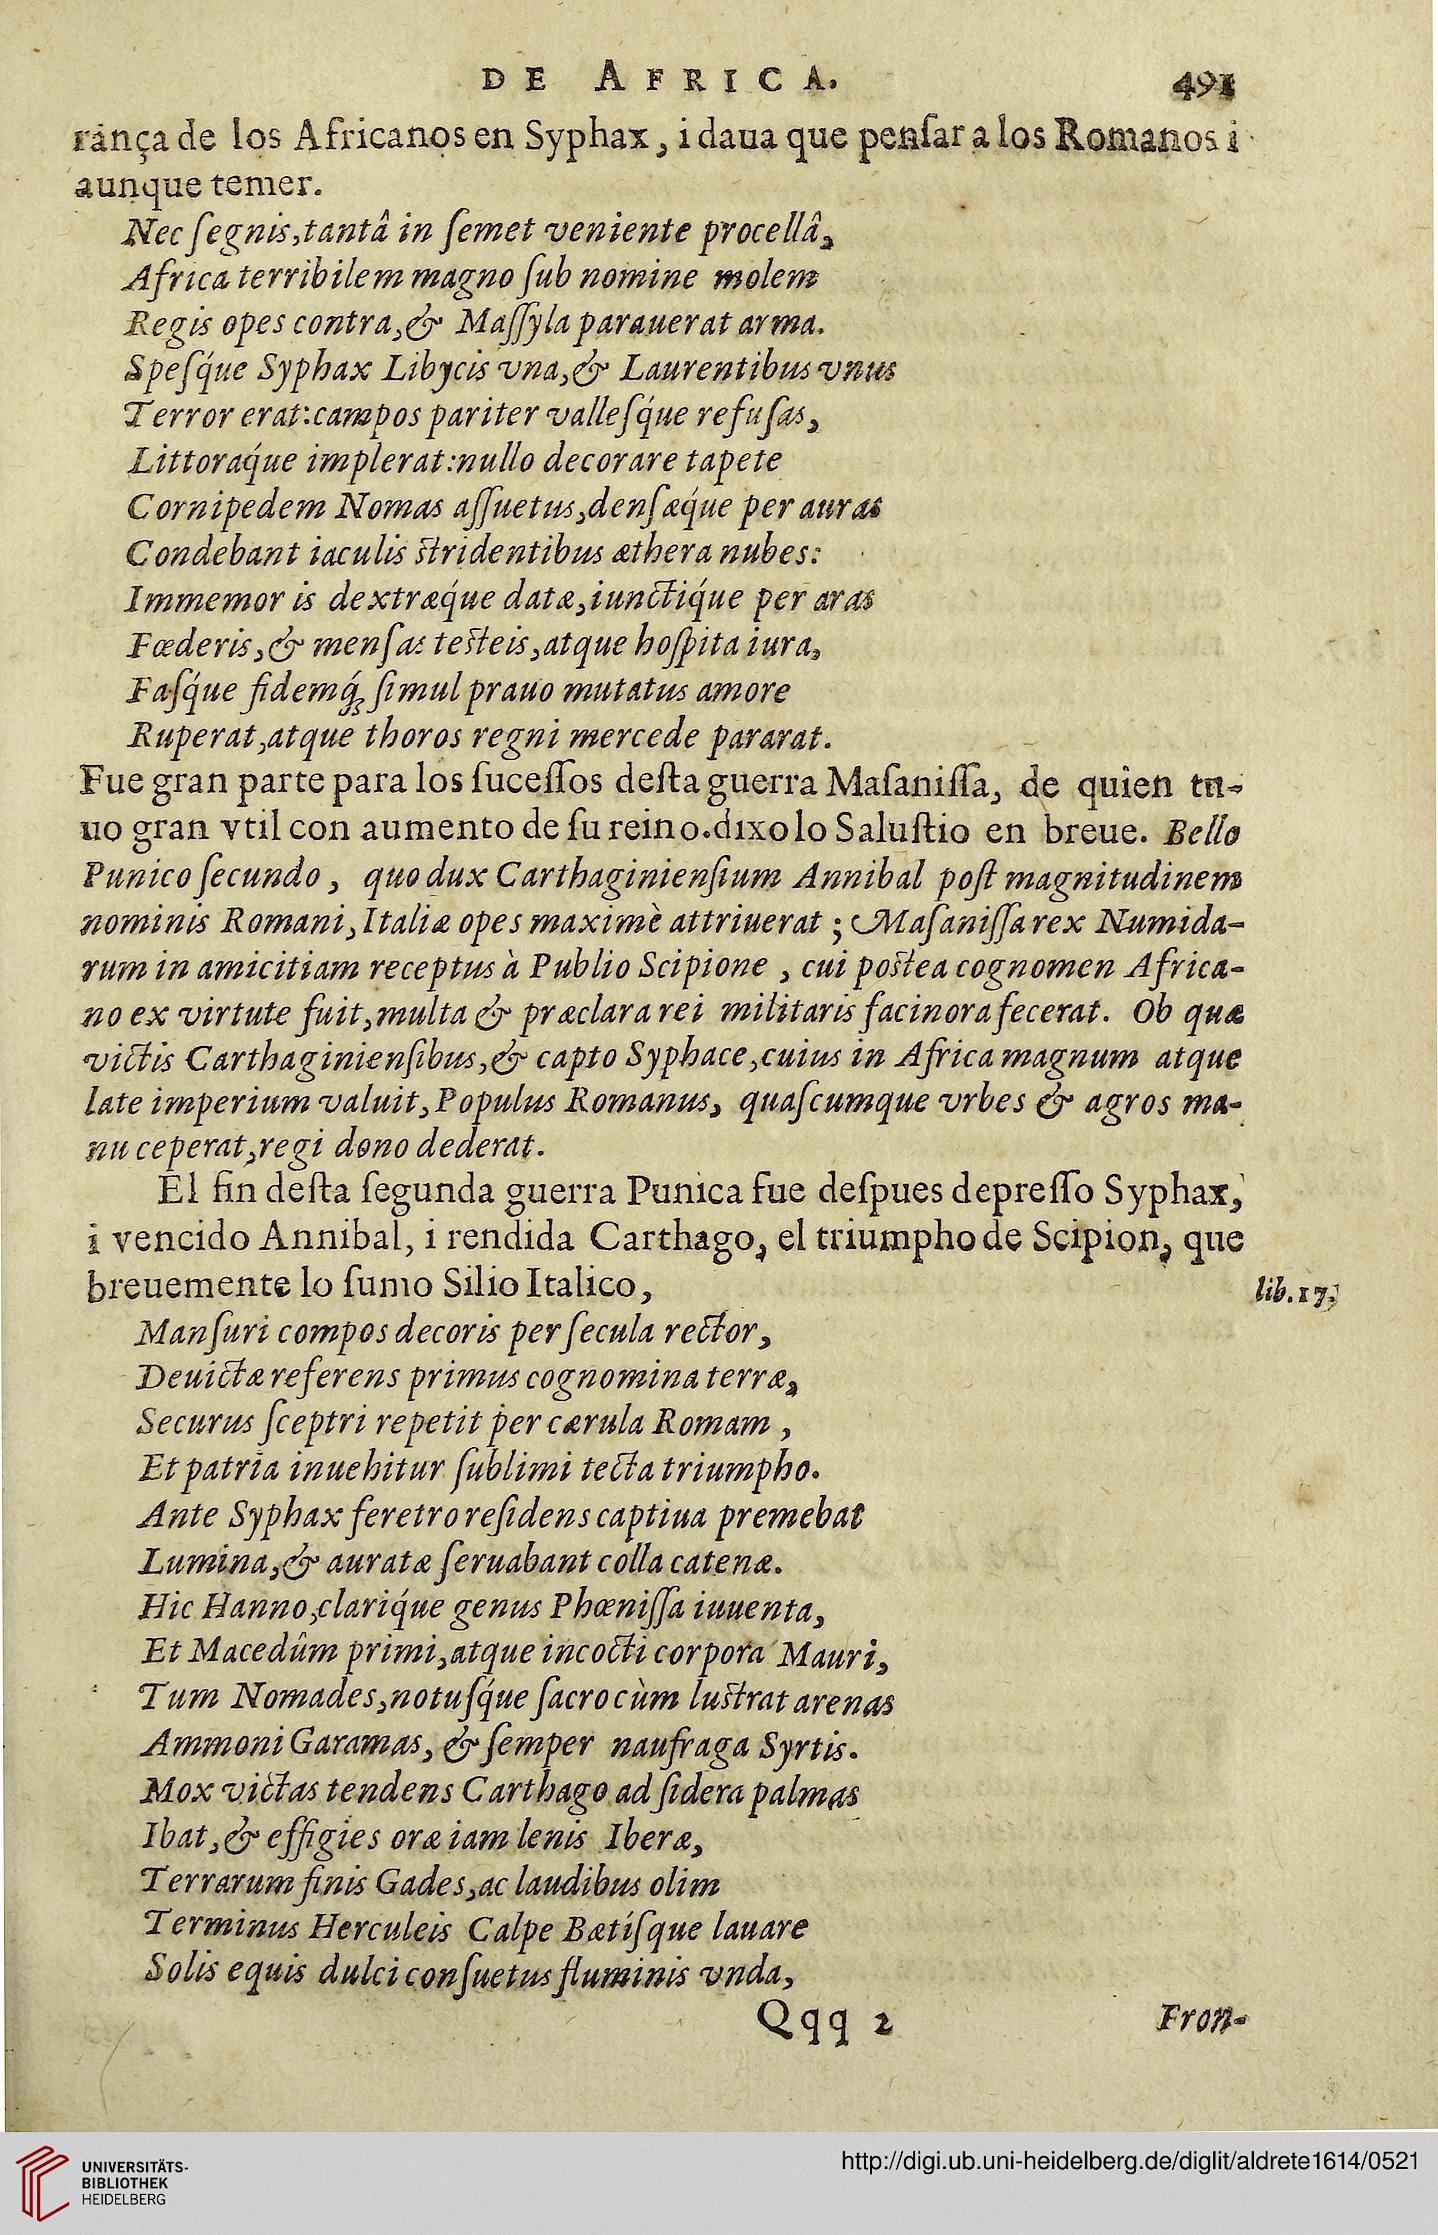 DE AFRICA. 491
rança de los Africanos en Syphax, i daua que penſar a los Romanos i
aunque temer.
Nec ſegnis,tantâ in ſemet veniente procellâ,
Africa terribilem magno ſub nomine molem
Regis opes contra,& Maſſyla parauerat arma.
Speſq́ue Syphax Libycis vna,& Laurentibus vnus
Terror erat:campos pariter valleſq́ue refuſas,
Littoraq́ue implerat:nullo decorare tapete
Cornipedem Nomas aſſuetus,denſæq́ue per auras
Condebant iaculis ſtridentibus æthera nubes:
Immemor is dextræq́ue datæ,iunctiq́ue per aras
Fœderis,& menſas teſteis,atque hoſpita iura,
Faſq́ue fidemq́; ſimul prauo mutatus amore
Ruperat,atque thoros regni mercede pararat.
Fue gran parte para los ſuceſſos deſta guerra Maſaniſſa, de quien tu-
uo gran vtil con aumento de ſu reino.dixolo Saluſtio en breue. Bello
Punico ſecundo, quo dux Carthaginienſium Annibal poſt magnitudinem
nominis Romani,Italiæ opes maximè attriuerat; Maſaniſſa rex Numida-
rum in amicitiam receptus à Publio Scipione, cui poſtea cognomen Africa-
no ex virtute fuit,multa & præclara rei militaris facinora fecerat. Ob quæ
victis Carthaginienſibus,& capto Syphace,cuius in Africa magnum atque
late imperium valuit,Populus Romanus, quaſcumque vrbes & agros ma-
nu ceperat,regi dono dederat.
El fin deſta ſegunda guerra Punica fue deſpues depreſſo Syphax,
i vencido Annibal, i rendida Carthago, el triumpho de Scipion, que
breuemente lo ſumo Silio Italico, lib.17.
Manſuri compos decoris per ſecula rector,
Deuictæ referens primus cognomina terræ,
Securus ſceptri repetit per cærula Romam,
Et patria inuehitur ſublimi tecta triumpho.
Ante Syphax feretro reſidens captiua premebat
Lumina,& auratæ ſeruabant colla catenæ.
Hic Hanno,clariq́ue genus Phœniſſa iuuenta,
Et Macedûm primi,atque incocti corpora Mauri,
Tum Nomades,notuſq́ue ſacro cùm luſtrat arenas
Ammoni Garamas, & ſemper naufraga Syrtis.
Mox victas tendens Carthago ad ſidera palmas
Ibat,& effigies oræ iam lenis Iberæ,
Terrarum finis Gades,ac laudibus olim
Terminus Herculeis Calpe Bætíſque lauare
Solis equis dulci conſuetus fluminis vnda,
Qqq 2 Fron-
UNIVERSITÄTS-
BIBLIOTHEK
HEIDELBERG
http://digi.ub.uni-heidelberg.de/diglit/aldrete1614/0521